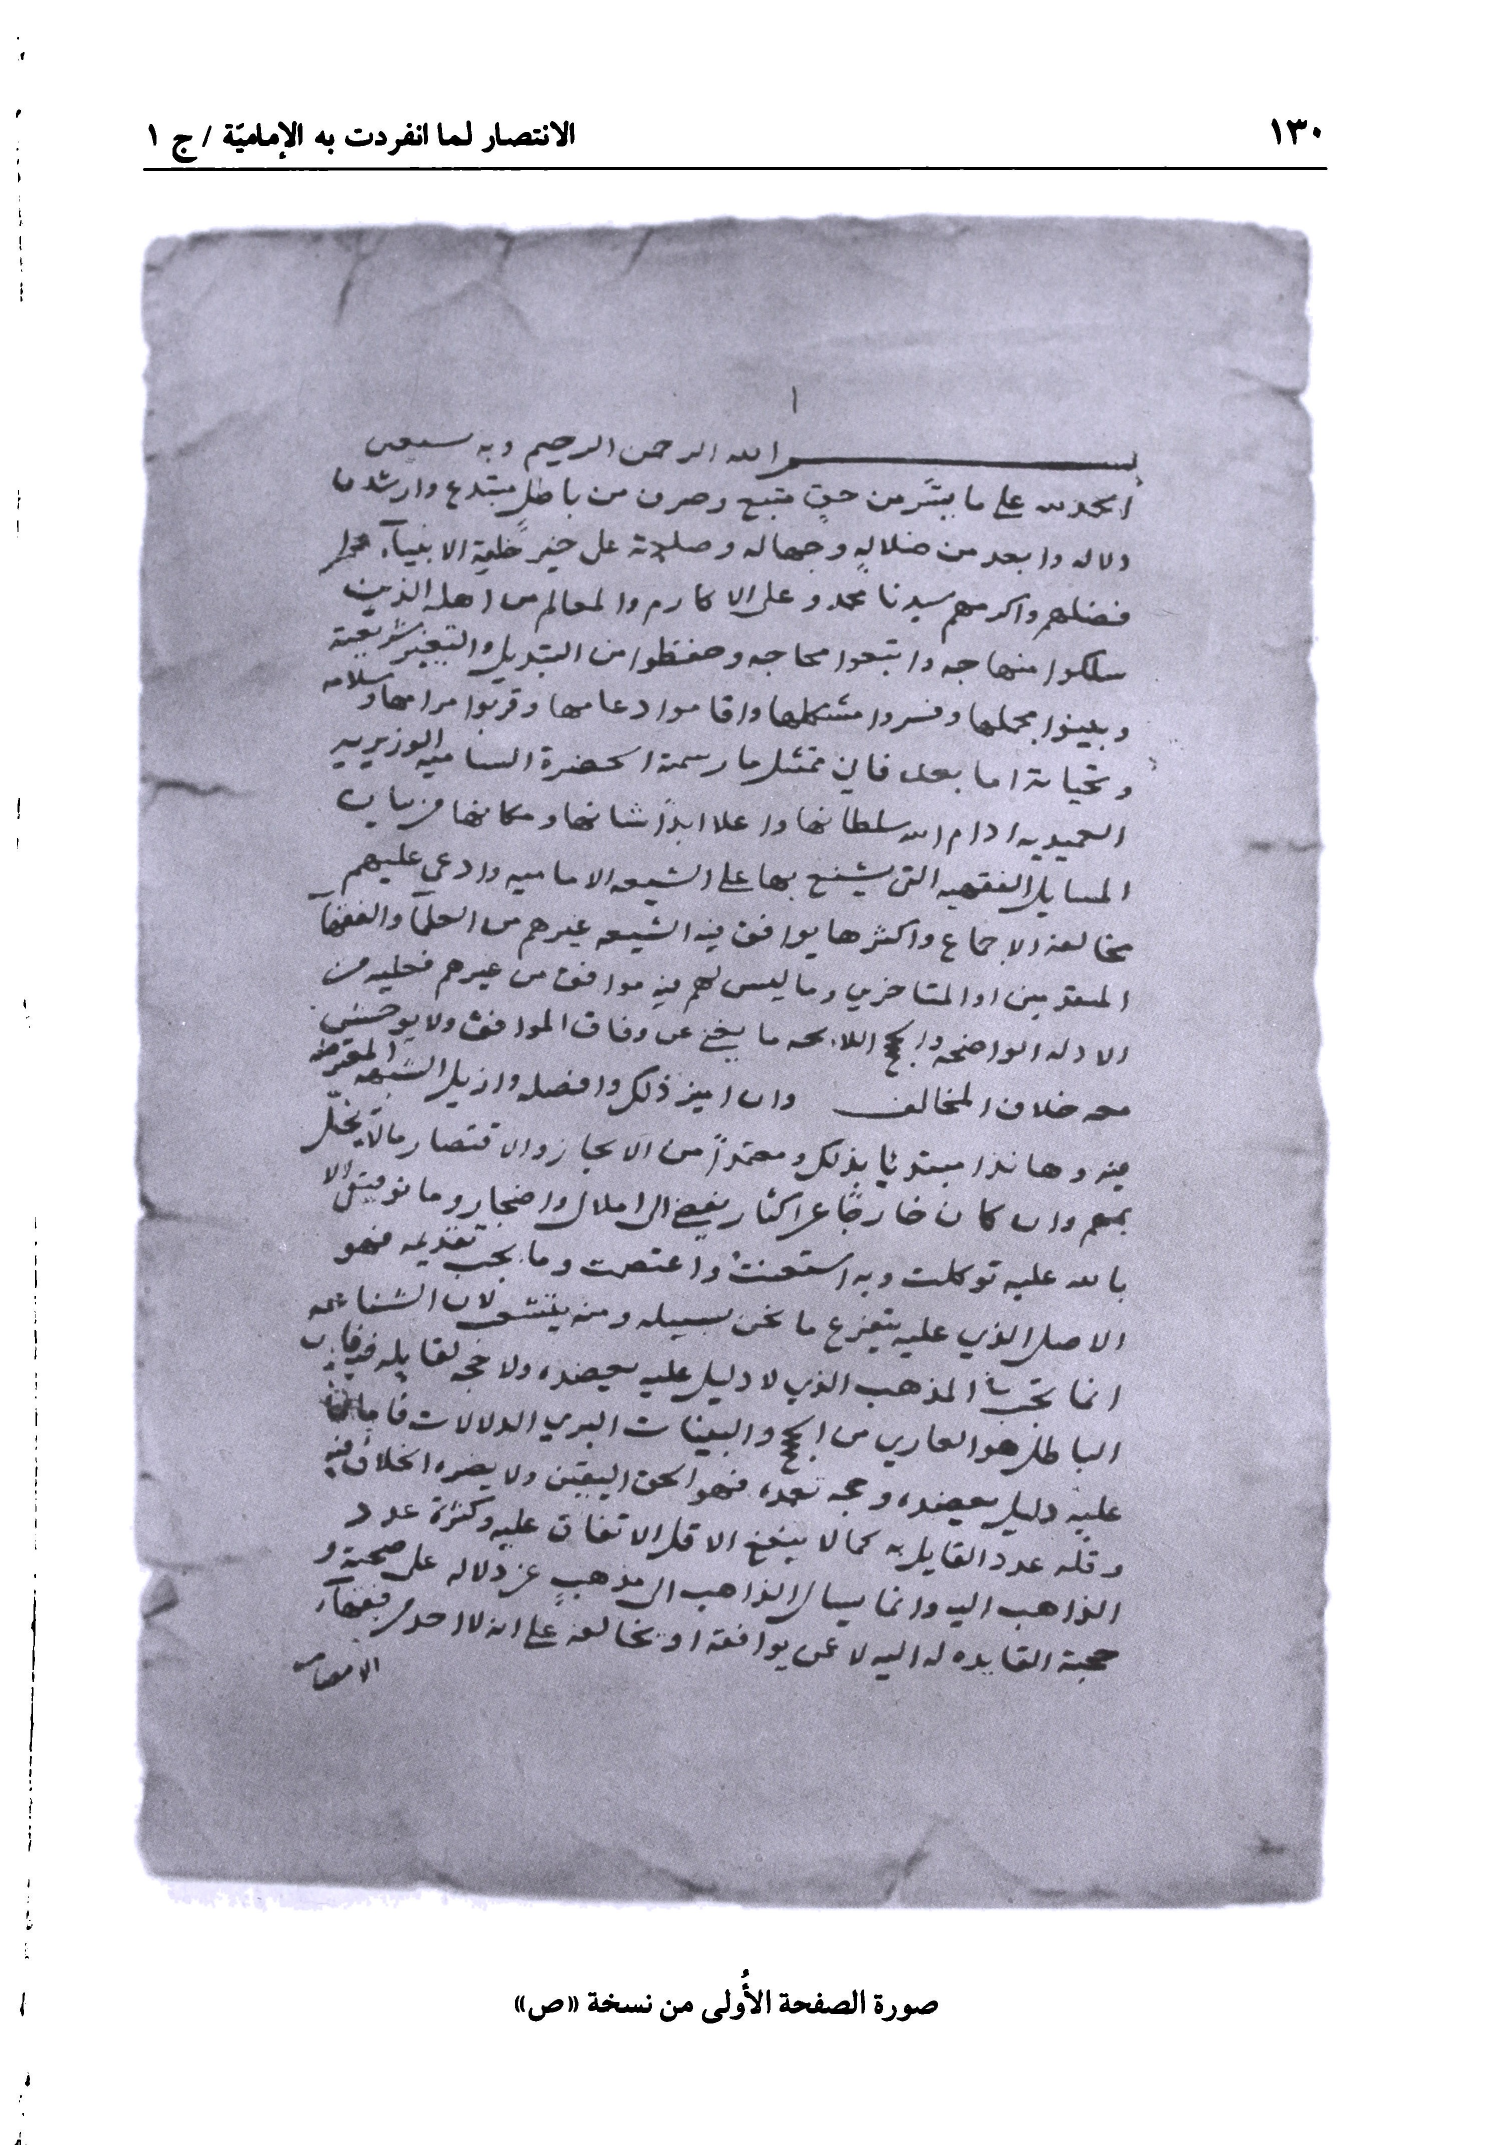 ١٣٠
الانتصار لما انفردت به الإماميّة / ج ١
١
بسم الله الرحمن الرحيم وبه نستعين
الحمد لله على ما بيّن من حق متبع وصرف من باطل مبتدع وارشد ما
دلاله وابعد من ضلاله وجهاله وصلاته على خير خليقة الانبيآء
فضلهم واكرمهم سيدنا محمد وعلى الاكارم والمعالم من اهله الذين
سلكوا منهاجه واتبعوا محاجه وحفظوا من التبديل والتغيير شريعته
وبينوا مجملها وفسروا مشكلها واقاموا دعامها وقربوا مرامها وسلامه
وتحياته اما بعد فاني ممتثل ما رسمته الحضرة الساميه الوزيريه
العميديه ادام الله سلطانها واعلا ابدا شانها ومكانها من بيان
المسايل الفقهيه التى يشنع بها على الشيعه الاماميه وادعي عليهم
مخالفة الاجماع واكثرها يوافق فيه الشيعه غيرهم من العلمآ والفقهآ
المتقدمين او المتاخرين وما ليس لهم فيه موافق من غيرهم فعليه من
الادله الواضحه والحجج اللايحه ما يغني عن وفاق الموافق ولا يوحش
معه خلاف المخالف وان ابين ذلك وافصله وازيل الشبهه المعترضه
فيه وها نذا مبتدئا بذلك ومعتمدا من الايجاز والاقتصار مالا يخلّ
بفهم وان كان خارجا عن اكثار يفضي الى املال واضجار وما توفيقي الا
بالله عليه توكلت وبه استعنت واعتصمت وما يجب تقديمه فهو
الاصل الذي عليه يتفرع ما نحن بسبيله ومنه ينشعب لان الشناعه
انما تجب في المذهب الذي لا دليل عليه يعضده ولا حجه لقايله فيه فان
الباطل هو العاري من الحجج والبينات البري الدلالات فاما ما
عليه دليل يعضده وحجه تعمده فهو الحق اليقين ولا يضره الخلاف فيه
وقله عدد القايل به كما لا ينفع الاول الاتفاق عليه وكثرة عدد
الذاهب اليه وانما يسال الذاهب الى مذهب عن دلاله على صحته و
حجته القايده له اليه لا عمن يوافقه او يخالفه على انه لا احد من فقهآء
الامصار
صورة الصفحة الأُولى من نسخة «ص»